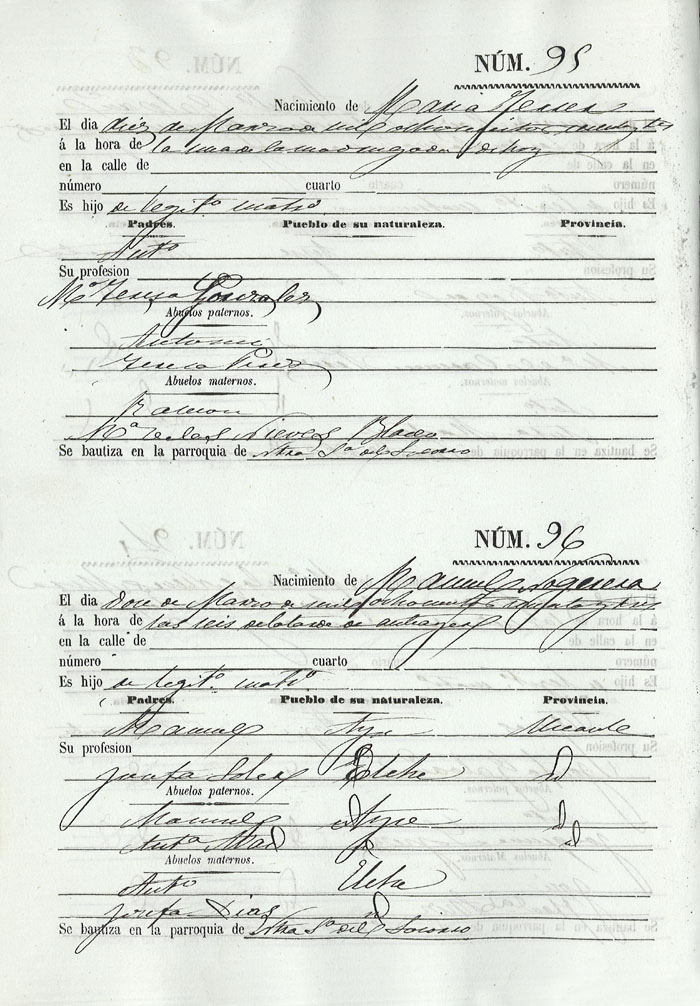 NÚM. 95
Nacimiento de Maria Teresa
El dia diez de Marzo de mil ochocientos cincuenta y tres
á la hora de la una de la madrugada de hoy
en la calle de
número cuarto
Es hijo de legit.º matr.º
Padres. Pueblo de su naturaleza. Provincia.
Ant.º
Su profesion
M.ª Teresa Gonzalez
Abuelos paternos.
Antonio
Teresa
Abuelos maternos.
Ramon
M.ª de las Nieves Blasco
Se bautiza en la parroquia de Ntra S.ª del Socorro
NÚM. 96
Nacimiento de Manuel
El dia Doce de Marzo de mil ochocientos cincuenta y tres
á la hora de las seis de la tarde de antiayer
en la calle de
número cuarto
Es hijo de legit.º matr.º
Padres. Pueblo de su naturaleza. Provincia.
Manuel Aspe Alicante
Su profesion
Josefa Soler Elche Id
Abuelos paternos.
Manuel Aspe Id
Ant.ª Id Id
Abuelos maternos.
Ant.º Elche
Josefa Dias Id
Se bautiza en la parroquia de Ntra S.ª del Socorro